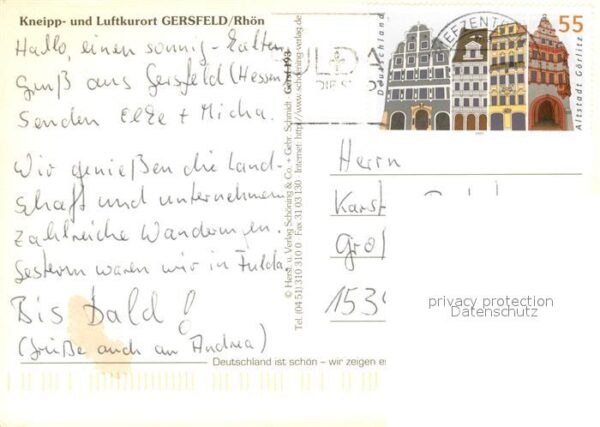 Kneipp- und Luftkurort GERSFELD/Rhön
Hallo, einen sonnig-kalten
Gruß aus Gersfeld (Hessen)
Senden Elke + Micha.
Wir genießen die Land-
schaft und unternehmen
zahlreiche Wanderungen.
Gestern waren wir in Fulda
Bis bald!
(Grüße auch an Andrea)
© Herst. u. Verlag Schöning & Co. + Gebr. Schmidt
Tel. (04 51) 310 310 0 · Fax 31 03 130 · Internet: http://www.schoening-verlag.de
Gersf 193
Deutschland ist schön – wir zeigen es
FULDA
DIE
BRIEFZENTRUM
Deutschland
55
Altstadt Görlitz
Herrn
Karst
Groß
1539
privacy protection
Datenschutz